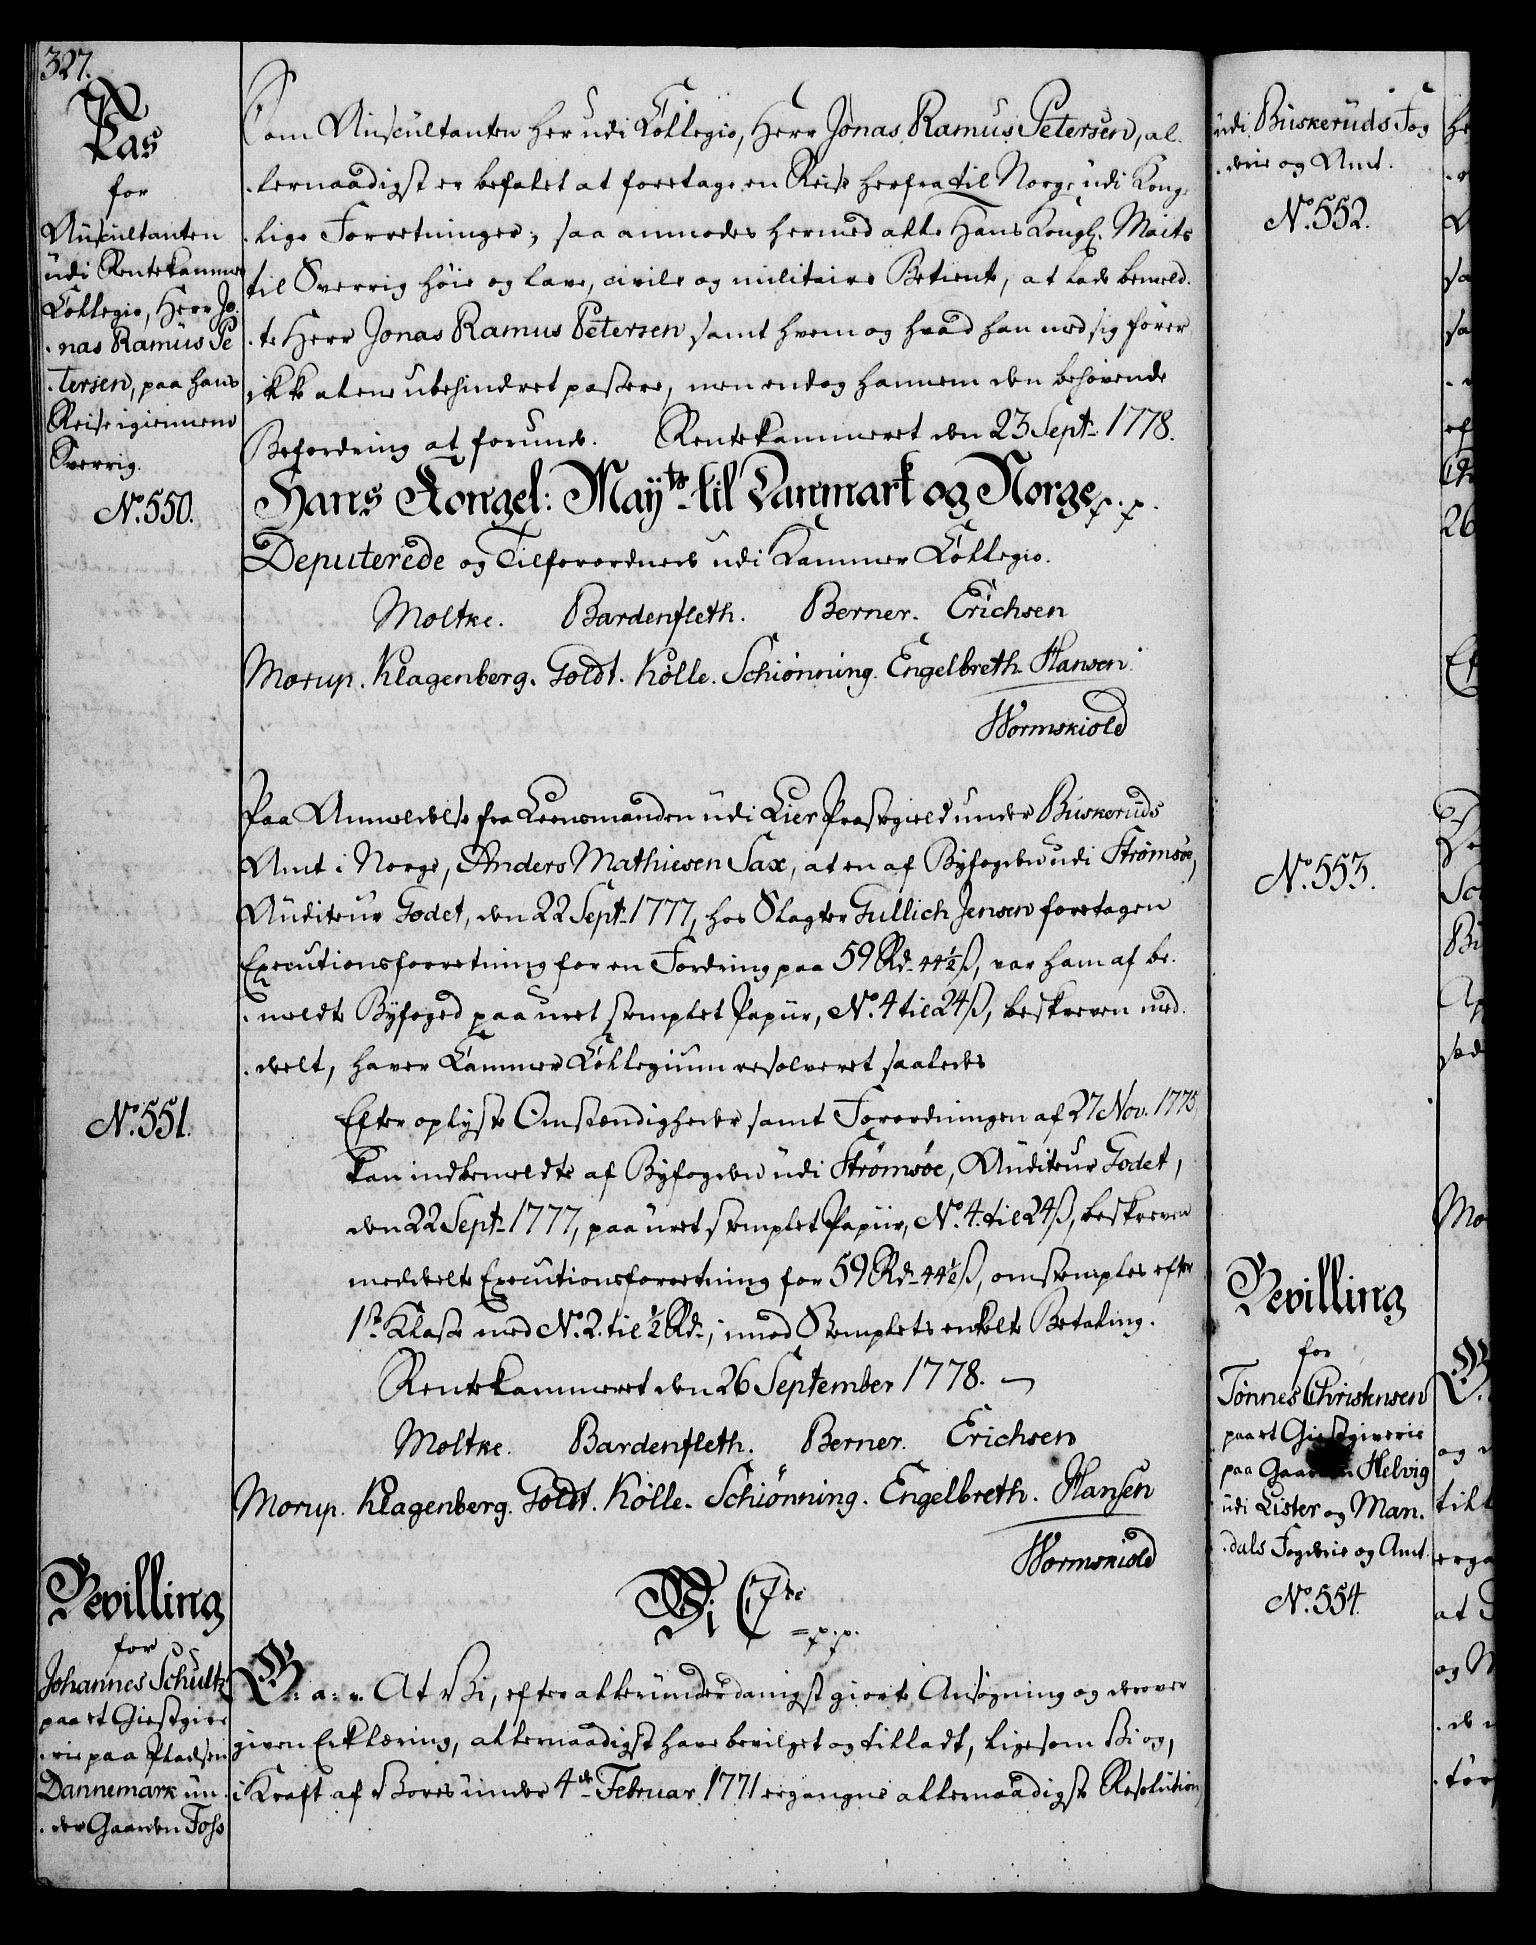 327.
Pas
for
Auscultanten
udi Rentekammer
Collegio, Herr Jo-
-nas Ramus Pe
-tersen, paa hans
Reise igiennem
Sverrig.
No. 550.
Som Auscultanten her udi Collegio, Herr Jonas Ramus Petersen, al-
-lernaadigst er befalet at foretage en Reise herfra til Norge udi Kong-
-lige Forretninger; saa anmodes hermed alle Hans Kongl. Maits
til Sverrig høie og lave, civile og militaire Betiente, at lade bemeld-
-te Herr Jonas Ramus Petersen samt hvem og hvad han med sig fører
ikke alene ubehindret passere, men endog hannem den behøvende
Befordring at forunde. Rentekammeret den 23 Septr. 1778.
Hans Kongel: Mayts. til Danmark og Norge p. p.
Deputerede og Tilforordnede udi Kammer Collegio.
Moltke. Bardenfleth. Berner. Erichsen
Morup. Klagenberg. Goldt. Kølle. Schiønning. Engelbreth. Hansen.
Wormskiold
Paa Anmeldelse fra Leensmanden udi Lier Præstegield under Buskeruds
Amt i Norge, Anders Mathiesen Sax, at en af Byfogden udi Strømsøe,
Auditeur Godet, den 22 Septr. 1777, hos Slagter Gullich Jensen foretagen
Executionsforretning for en Fordring paa 59 Rd. 44½ ß, var ham af be-
-meldte Byfoged paa uret stemplet Papiir, No. 4 til 24 ß, beskreven med-
-deelt, haver Cammer Collegium resolveret saaledes
No. 551.
Efter oplyste Omstændigheder samt Forordningen af 27 Nov. 1775,
kan indbemeldte af Byfogden udi Strømsøe, Auditeur Godet,
den 22 Septr. 1777, paa uret stemplet Papiir, No. 4. til 24 ß, beskreven
meddeelte Executionsforretning for 59 Rd. 44½ ß, omstemples efter
1ste Klasse med No. 2. til ½ Rd., imod Stemplets enkelte Betaling.
Rentekammeret den 26 September 1778.
Moltke. Bardenfleth. Berner. Erichsen
Morup. Klagenberg. Goldt. Kølle. Schiønning. Engelbreth. Hansen
Wormskiold
Bevilling
for
Johannes Schultz
paa et Giestgive
-rie paa Pladsen
Dannemark un-
-der Gaarden Foss
Vi C 7de
p. p.
G: a: v. At Vi, efter allerunderdanigst giorte Ansøgning og derover
given Erklæring, allernaadigst have bevilget og tilladt, ligesom Vi og,
i Kraft af Vores under 4de Februar 1771 ergangne allernaadigste Resolution,
udi Buskeruds Fog
-derie og Amt.
No. 552.
No. 553.
Bevilling
for
Tønnes Christensen
paa et Giestgiverie
paa Gaarden Helvig
udi Lister og Man-
-dals Fogderie og Amt.
No. 554.